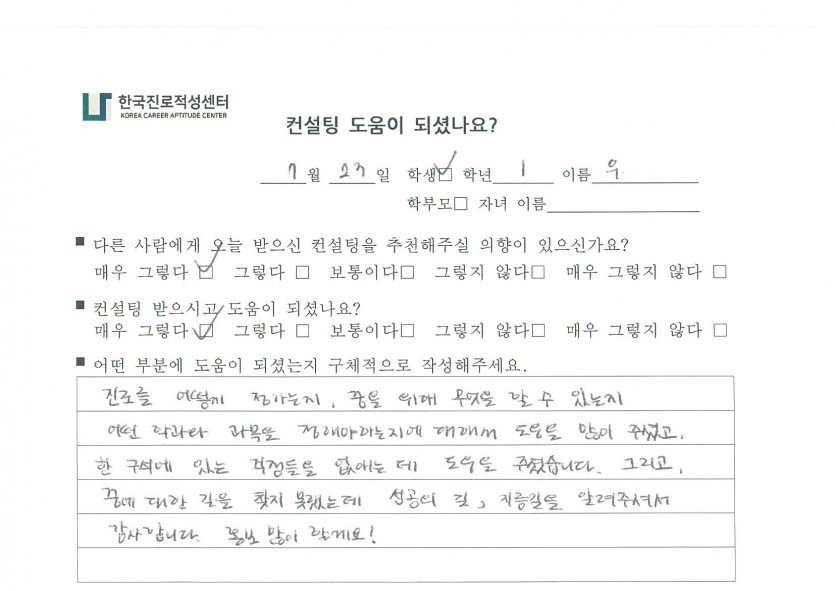 한국진로적성센터
KOREA CAREER APTITUDE CENTER
컨설팅 도움이 되셨나요?
7 월 23 일 학생☑ 학년 1 이름 우
학부모□ 자녀 이름
■ 다른 사람에게 오늘 받으신 컨설팅을 추천해주실 의향이 있으신가요?
매우 그렇다 ☑ 그렇다 □ 보통이다□ 그렇지 않다□ 매우 그렇지 않다 □
■ 컨설팅 받으시고 도움이 되셨나요?
매우 그렇다 ☑ 그렇다 □ 보통이다□ 그렇지 않다□ 매우 그렇지 않다 □
■ 어떤 부분에 도움이 되셨는지 구체적으로 작성해주세요.
진로를 어떻게 정하는지, 꿈을 위해 무엇을 할 수 있는지
어떤 학과와 과목을 정해야하는지에 대해서 도움을 많이 주셨고,
한 구석에 있는 걱정들을 없애는 데 도움을 주셨습니다. 그리고,
꿈에 대한 길을 찾지 못했는데 성공의 길, 지름길을 알려주셔서
감사합니다. 홍보 많이 할게요!